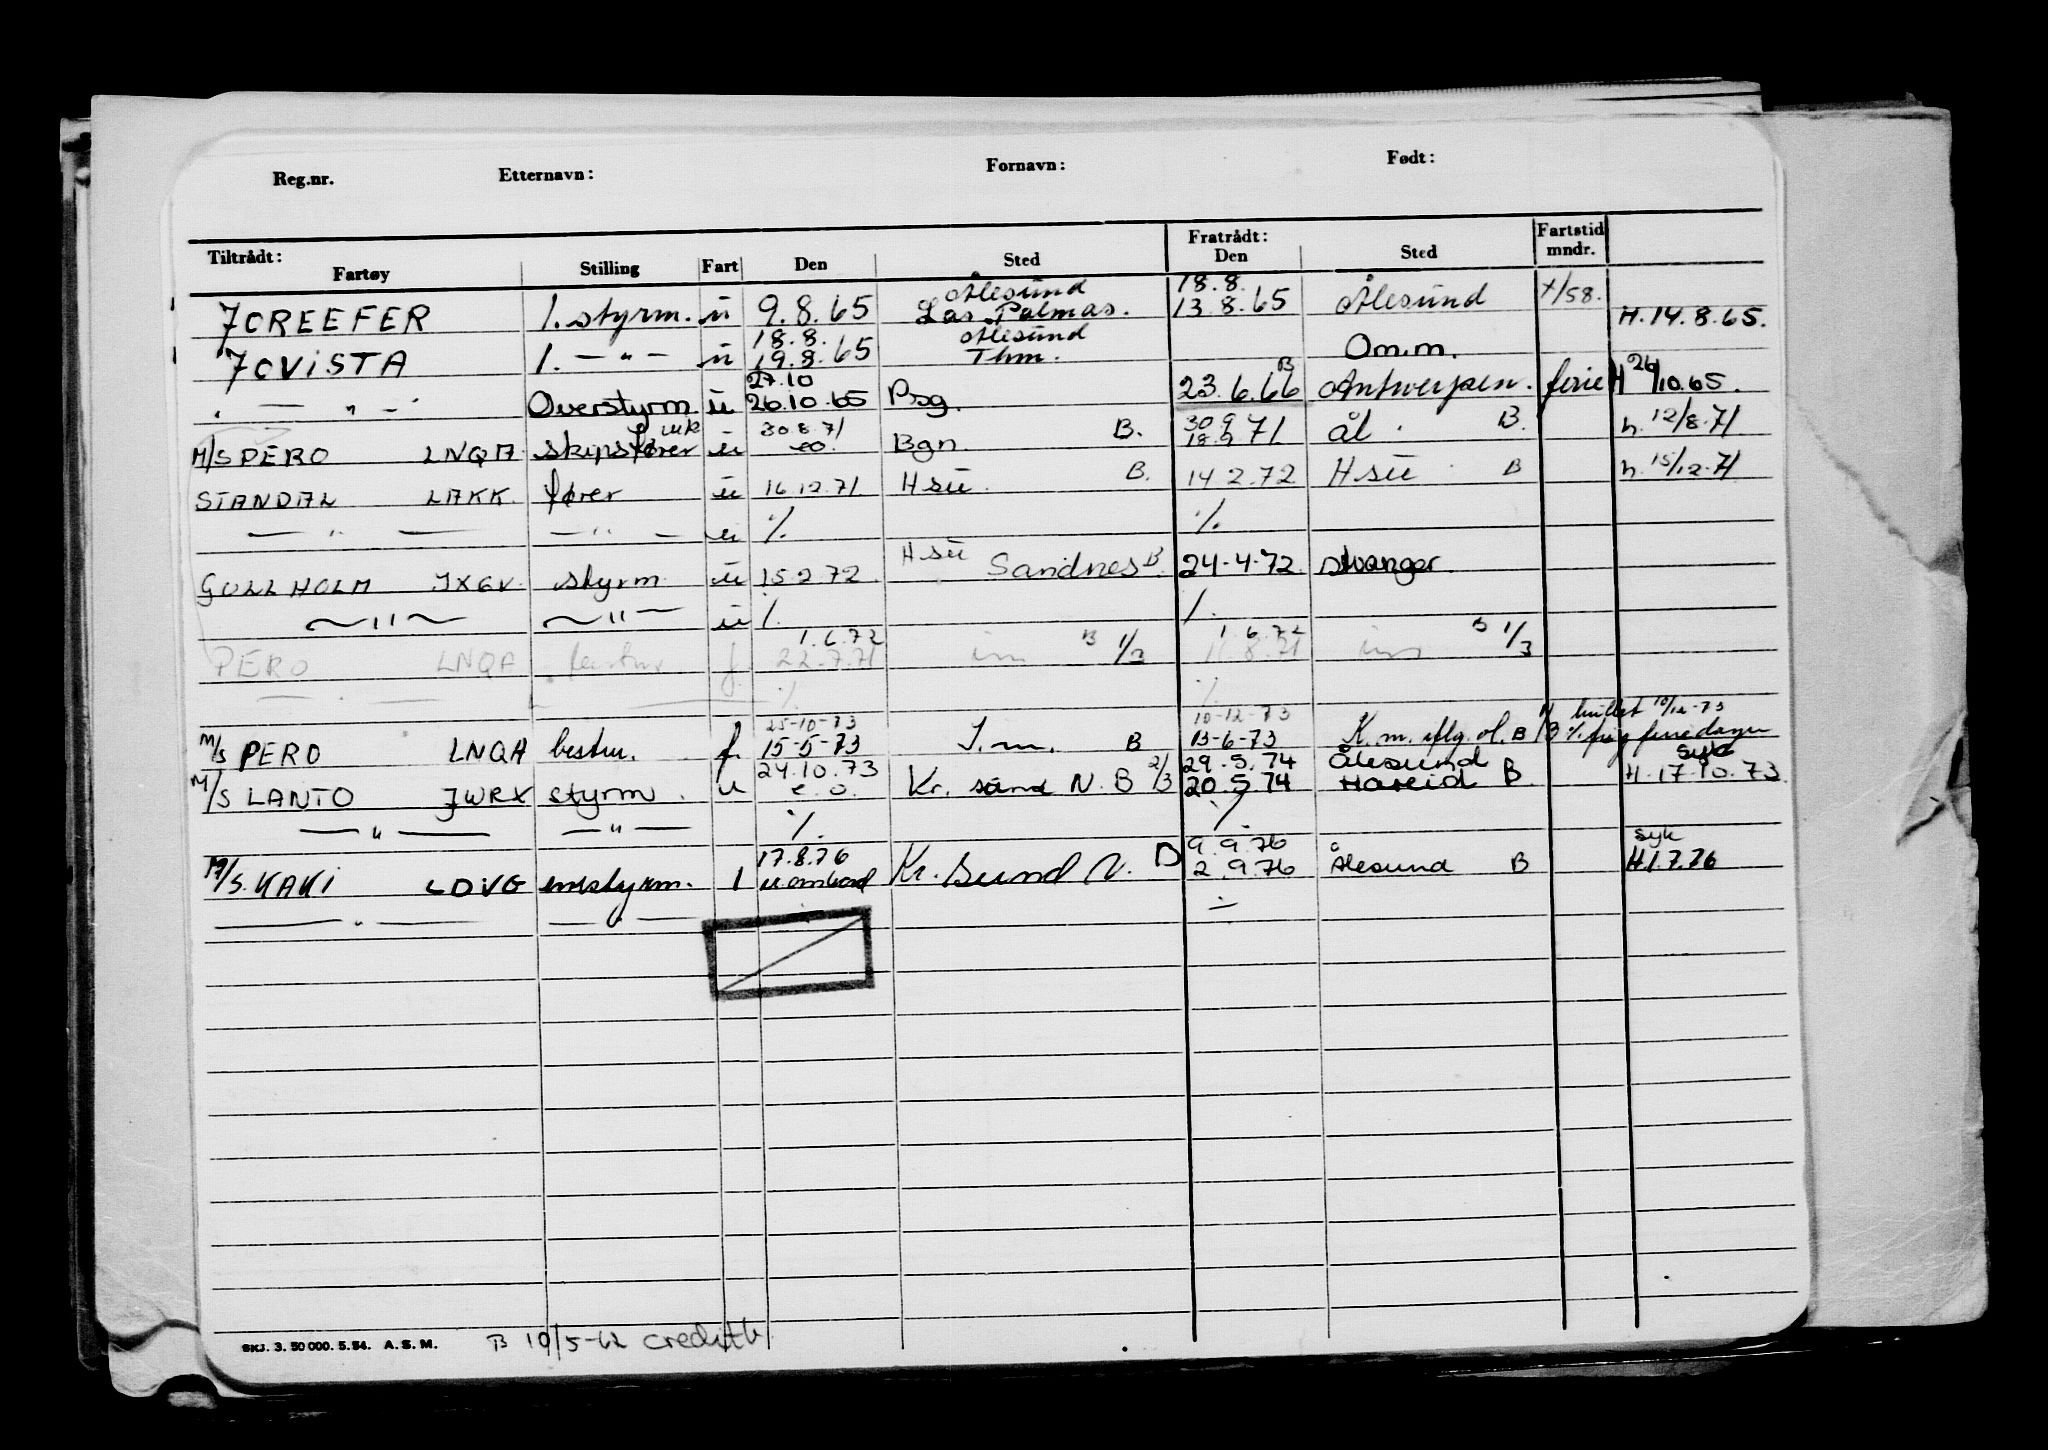 Reg.nr. Etternavn: Fornavn: Født:
Tiltrådt: Fratrådt: Fartstid
Fartøy Stilling Fart Den Sted Den Sted mndr.
Ålesund 18.8.
JOREEFER 1. styrm. ü 9.8.65 Las Palmas. 13.8.65 Ålesund x/58. H.14.8.65.
18.8. Ålesund
JOVISTA 1. — " — ü 19.8.65 Thm. Om.m.
27.10 B
— " — Overstyrm. ü 26.10.65 Psg. 23.6.66 Antwerpen. ferie H 26/10.65.
vik 30.8.71 30.9
M/S PERO LNQA skipsfører ü eo. Bgn. B. 18.9.71 Ål. B. h. 12/8.71
STANDAL LAKK. fører ü 16.12.71 Hsü. B. 14.2.72 Hsü B h. 15/12.71
— " — — " — ü ٪ ٪
GULLHOLM JXGV. styrm ü 15.2.72 Hsü Sandnes B. 24-4-72. stvanger.
— " — — " — ü ٪. ٪.
1.6.72 1.6.72
PERO LNQA bestur f. 22.7.71 im B 1/3 11.8.71 im B 1/3
— " — ٪ ٪
25-10-73 10-12-73 10/12-73
M/S PERO LNQA bestur. f. 15-5-73 I.m. B 13-6-73 K.m. iflg. ol. B feriedager
24.10.73 29.5.74 Ålesund syk
M/S LANTO JWRX styrm. u e.o. Kr. sand N. B 2/3 20.5.74 Hareid B H.17.10.73
— " — — " — ٪. ٪
17.8.76 9.9.76 syk
M/S. KAKI LDVG enestyrm. 1 u ombord Kr. Sund N. B 2.9.76 Ålesund B H1.7.76
— " — — " — ÷
SKJ. 3. 50 000. 5. 54. A. S. M. B 10/5-62